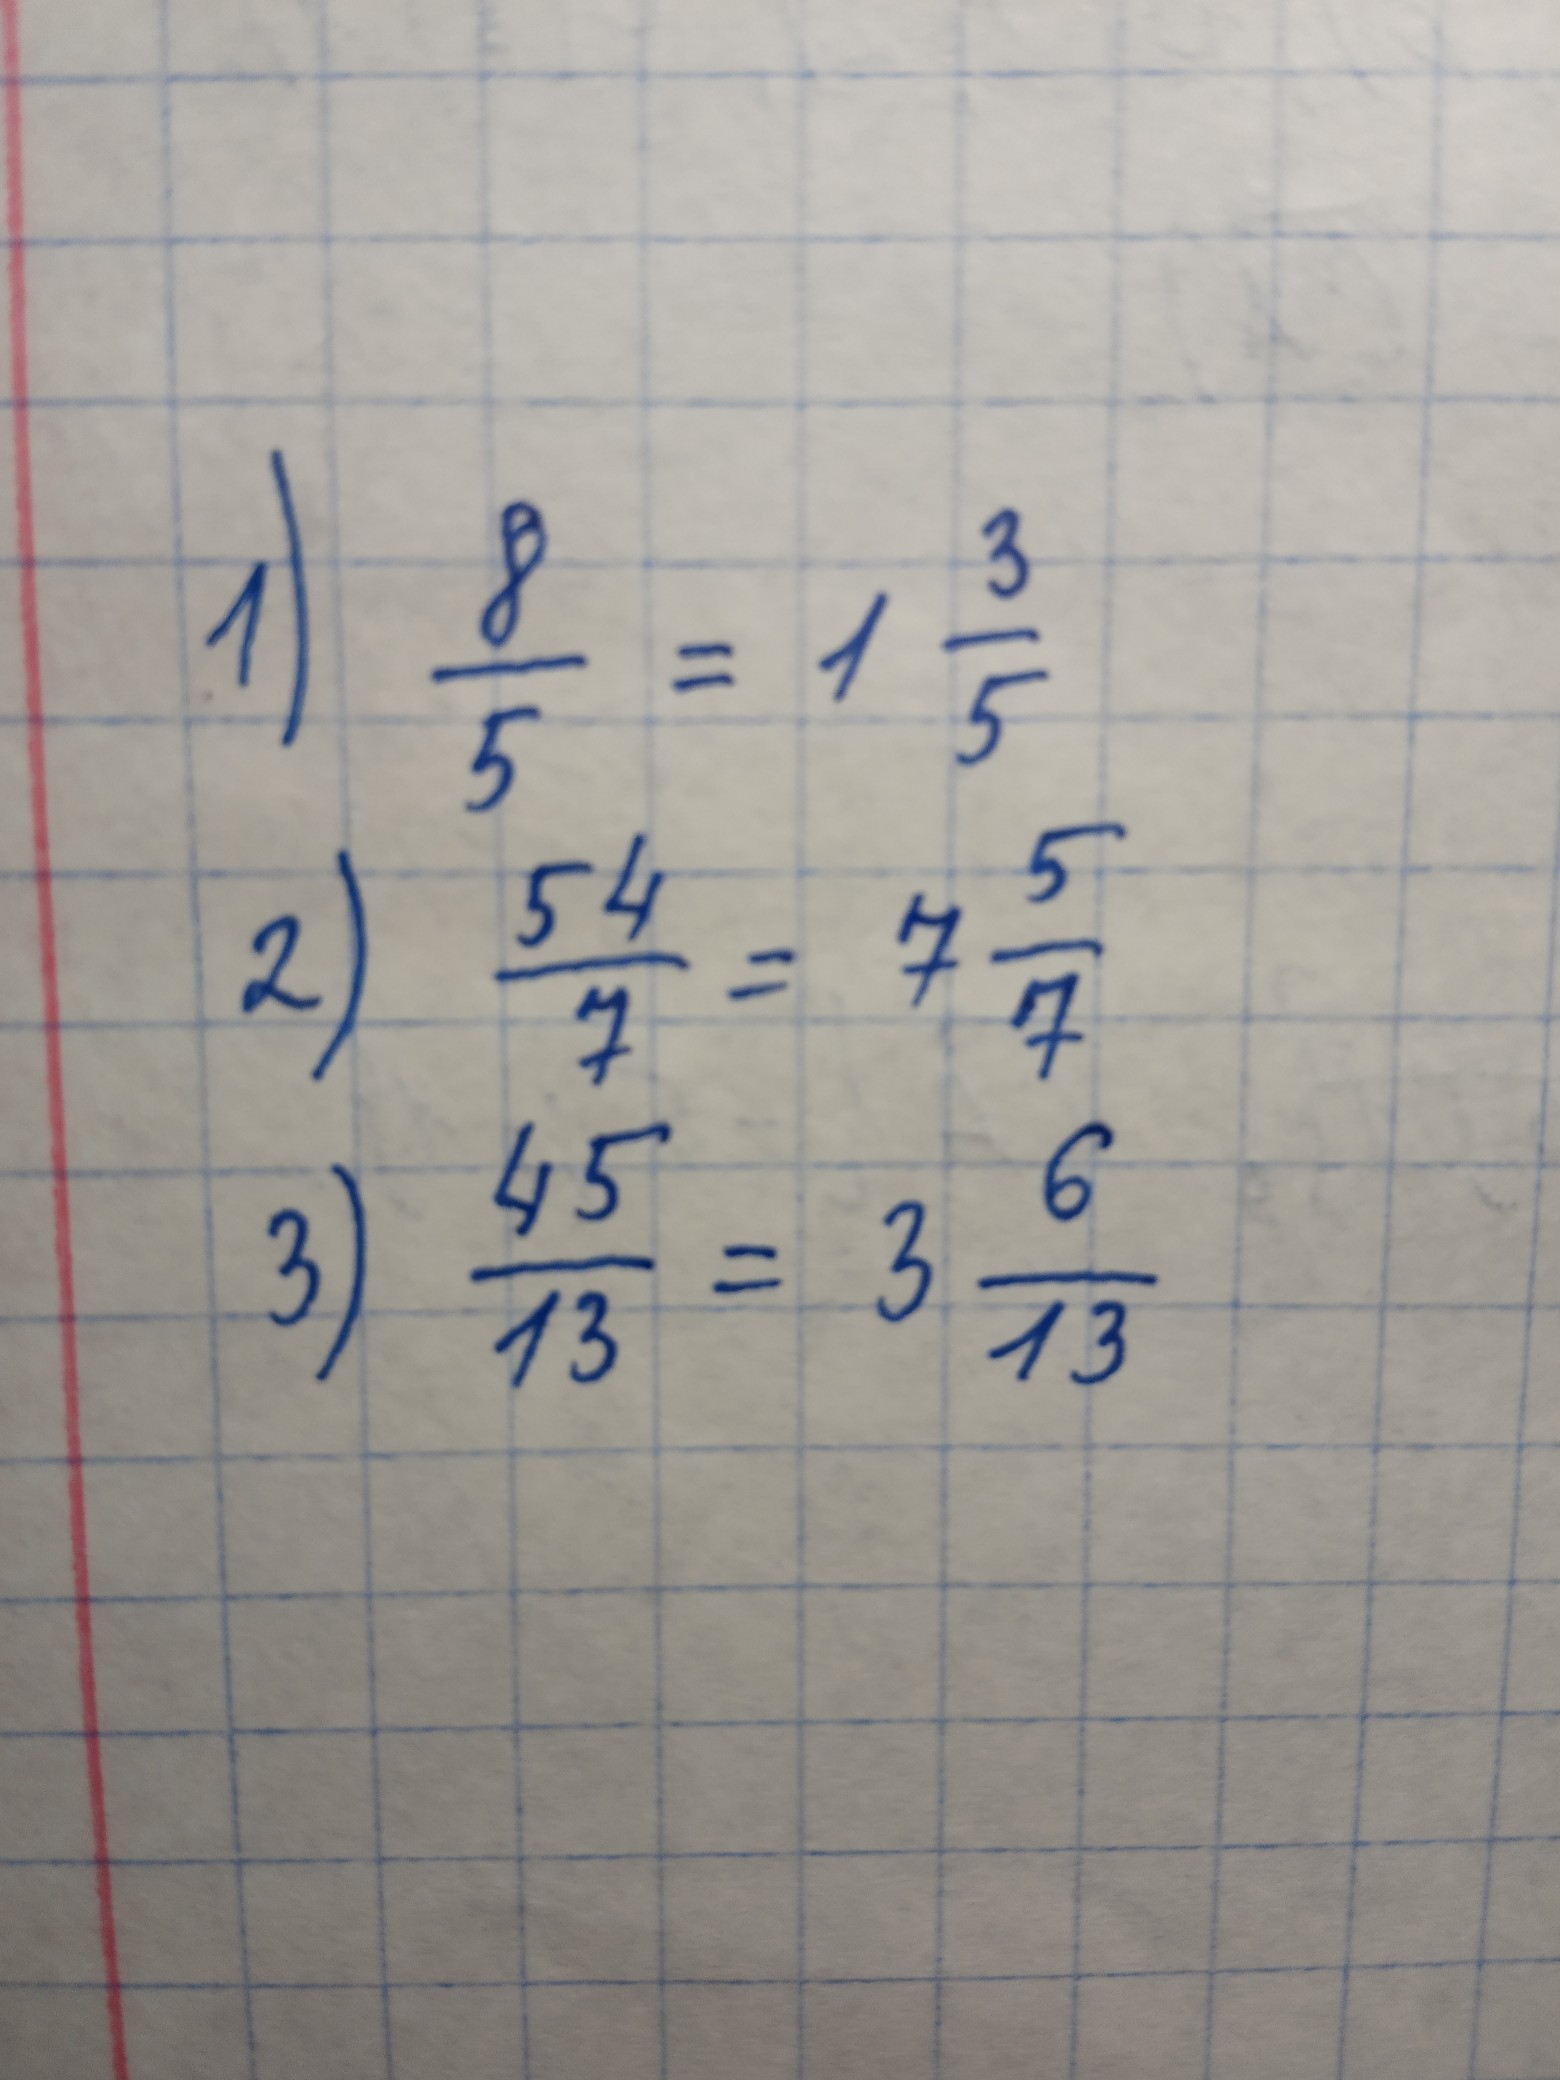 1) 8/5 = 1 3/5
2) 54/7 = 7 5/7
3) 45/13 = 3 6/13